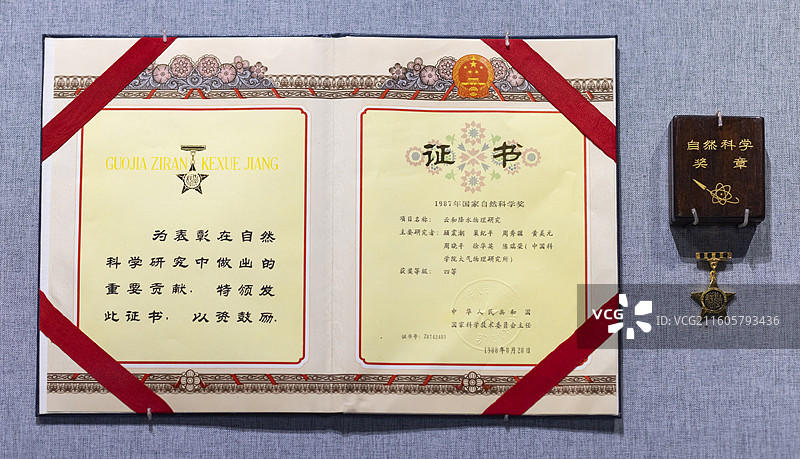 GUOJIA ZIRAN KEXUE JIANG
为表彰在自然
科学研究中做出的
重要贡献，特颁发
此证书，以资鼓励。
证书
1987年国家自然科学奖
项目名称：云和降水物理研究
主要研究者：顾震潮 巢纪平 周秀骥 黄美元
周晓平 徐华英 陈瑞荣(中国科
学院大气物理研究所)
获奖等级：四等
中华人民共和国
国家科学技术委员会主任
证书号：
1988年8月20日
自然科学
奖章
VCG
VCG211605793436